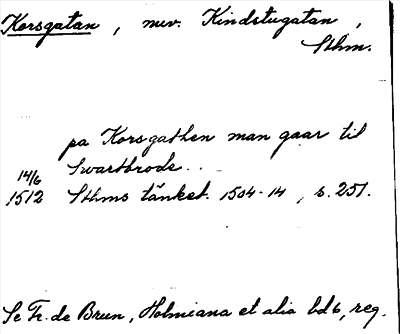 Korsgatan, nuv. Kindstugatan,
Sthm.
pa Korsgathen man gaar til
Swartbrode..
14/6
1512 Sthms tänkeb. 1504-14, s. 251.
Se Fr. de Brun, Holmiana et alia bd 6, reg.